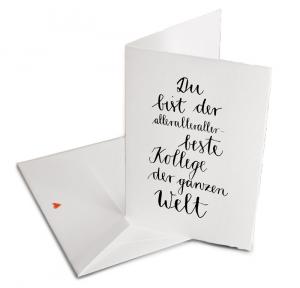 Du
bist der
alleralleraller-
beste
Kollege
der ganzen
Welt